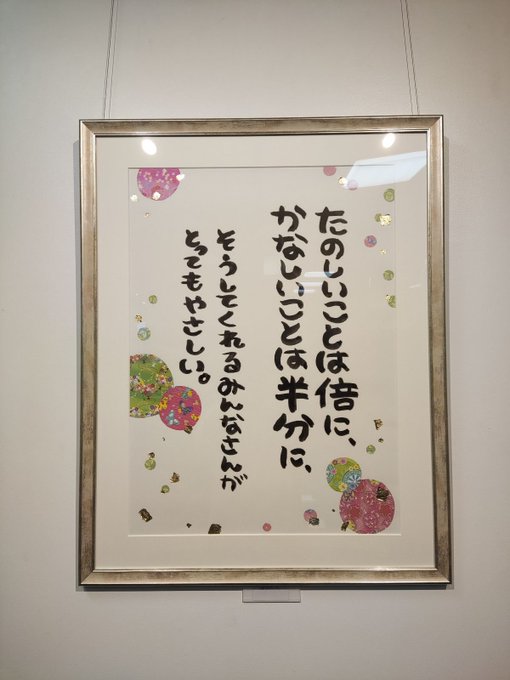 たのしいことは倍に、
かなしいことは半分に、
そうしてくれるみんなさんが
とってもやさしい。